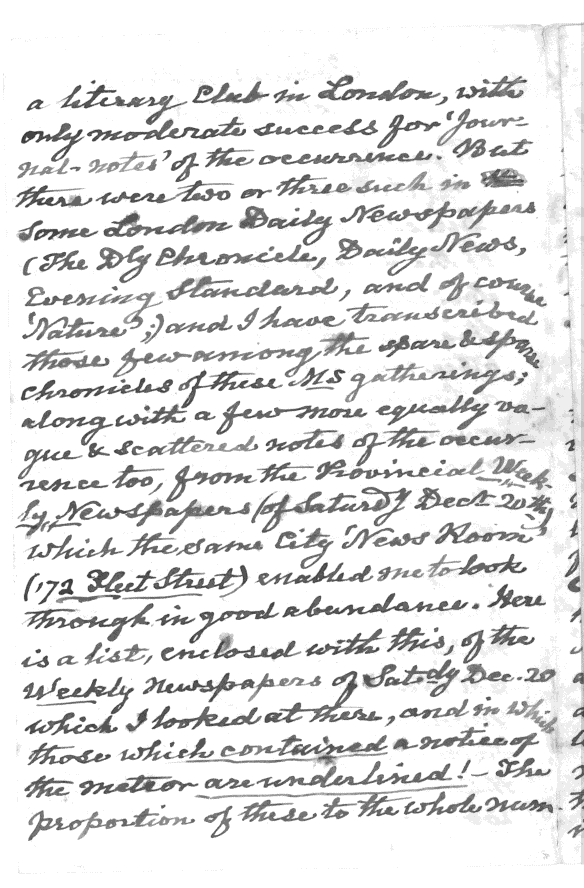 a literary Club in London, with
only moderate success for 'Jour-
nal-notes' of the occurrence. But
there were two or three such in
some London Daily Newspapers
(The Dly Chronicle, Daily News,
Evening Standard, and of course
'Nature';) and I have transcribed
those few among the spare & sparse
chronicles of these MS gatherings;
along with a few more equally va-
gue & scattered notes of the occur-
rence too, from the Provincial Week-
ly Newspapers (of Saturdy Decr 20th)
which the same City 'News Room'
('72 Fleet Street) enabled me to look
through in good abundance. Here
is a list, enclosed with this, of the
Weekly Newspapers of Satdy Dec. 20
which I looked at there, and in which
those which contained a notice of
the meteor are underlined! – The
proportion of these to the whole num-